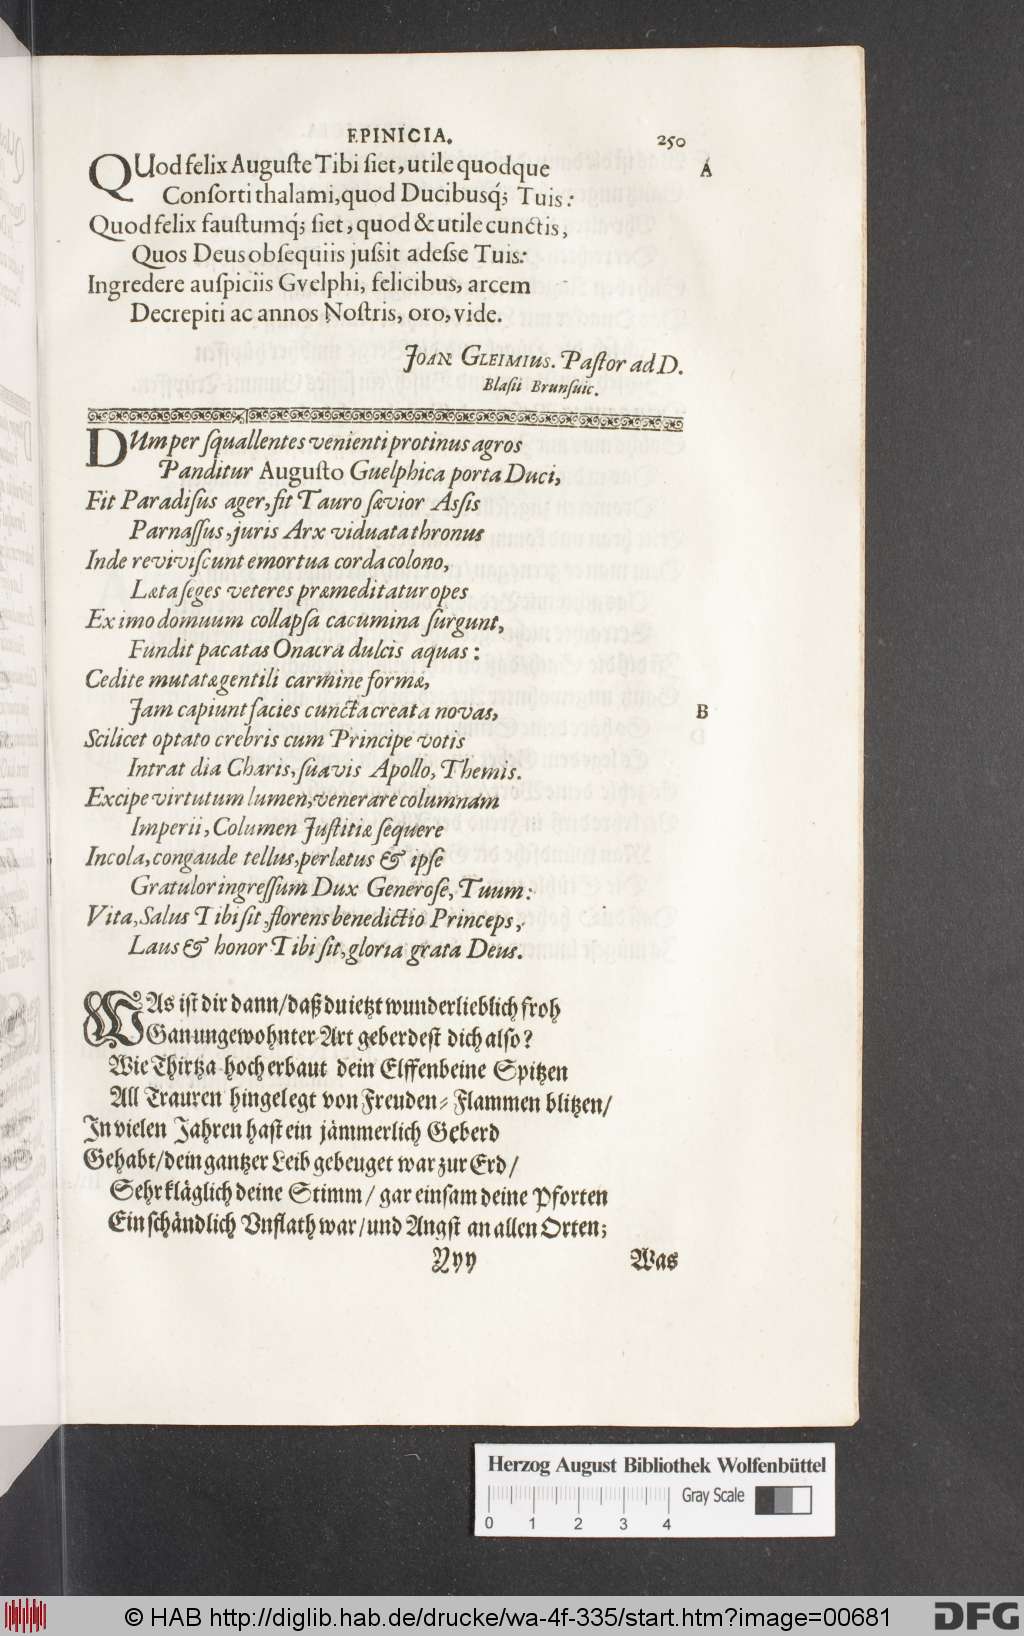 EPINICIA. 250
QUod felix Auguſte Tibi ſiet, utile quodque A
Conſorti thalami, quod Ducibusq́; Tuis:
Quod felix fauſtumq́; ſiet, quod & utile cunctis,
Quos Deus obſequiis juſsit adeſse Tuis:
Ingredere auſpiciis Gvelphi, felicibus, arcem
Decrepiti ac annos Noſtris, oro, vide.
JOAN GLEIMIUS. Paſtor ad D.
Blaſii Brunſuic.
DUm per ſquallentes venienti protinus agros
Panditur Auguſto Guelphica porta Duci,
Fit Paradiſus ager, fit Tauro ſævior Aſsis
Parnaſſus, juris Arx viduata thronus
Inde reviviſcunt emortua corda colono,
Læta ſeges veteres præmeditatur opes
Ex imo domuum collapſa cacumina ſurgunt,
Fundit pacatas Onacra dulcis aquas:
Cedite mutatæ gentili carmine formæ,
Jam capiunt facies cuncta creata novas, B
Scilicet optato crebris cum Principe votis
Intrat dia Charis, ſuavis Apollo, Themis.
Excipe virtutum lumen, venerare columnam
Imperii, Columen Juſtitiæ ſequere
Incola, congaude tellus, perlætus & ipſe
Gratulor ingreſſum Dux Generoſe, Tuum:
Vita, Salus Tibi ſit, florens benedictio Princeps,
Laus & honor Tibi ſit, gloria grata Deus.
WAs iſt dir dann/ daß du ietzt wunderlieblich froh
Gan ungewohnter Art geberdeſt dich alſo?
Wie Thirtza hoch erbaut dein Elffenbeine Spitzen
All Trauren hingelegt von Freuden⸗ Flammen blitzen/
In vielen Jahren haſt ein jämmerlich Geberd
Gehabt/ dein gantzer Leib gebeuget war zur Erd/
Sehr kläglich deine Stimm/ gar einſam deine Pforten
Ein ſchändlich Vnflath war/ und Angſt an allen Orten;
Yyy Was
Herzog August Bibliothek Wolfenbüttel
Gray Scale
0 1 2 3 4
© HAB http://diglib.hab.de/drucke/wa-4f-335/start.htm?image=00681 DFG